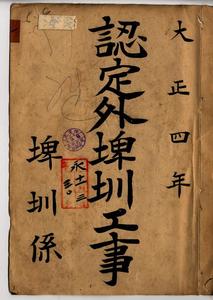 大正四年
認定外埤圳工事
埤圳係